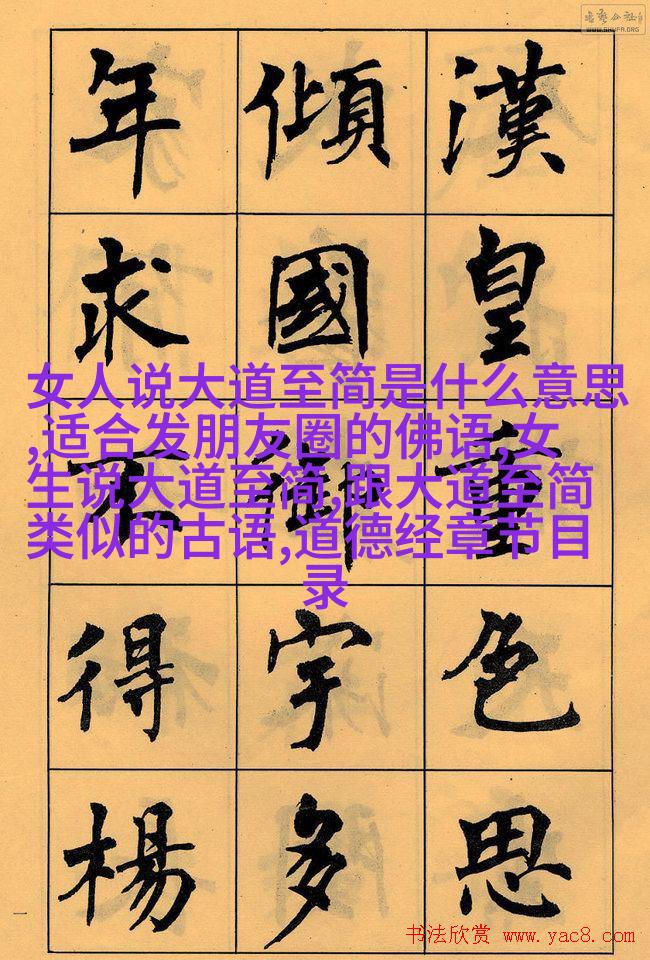 书艺公社
www.SHUFA.ORG
漢皇重色思
傾國御宇多
年求不得楊
女人说大道至简是什么意思
,适合发朋友圈的佛语,女
生说大道至简,跟大道至简
类似的古语,道德经章节目
录
一
书法欣赏 www.yac8.com